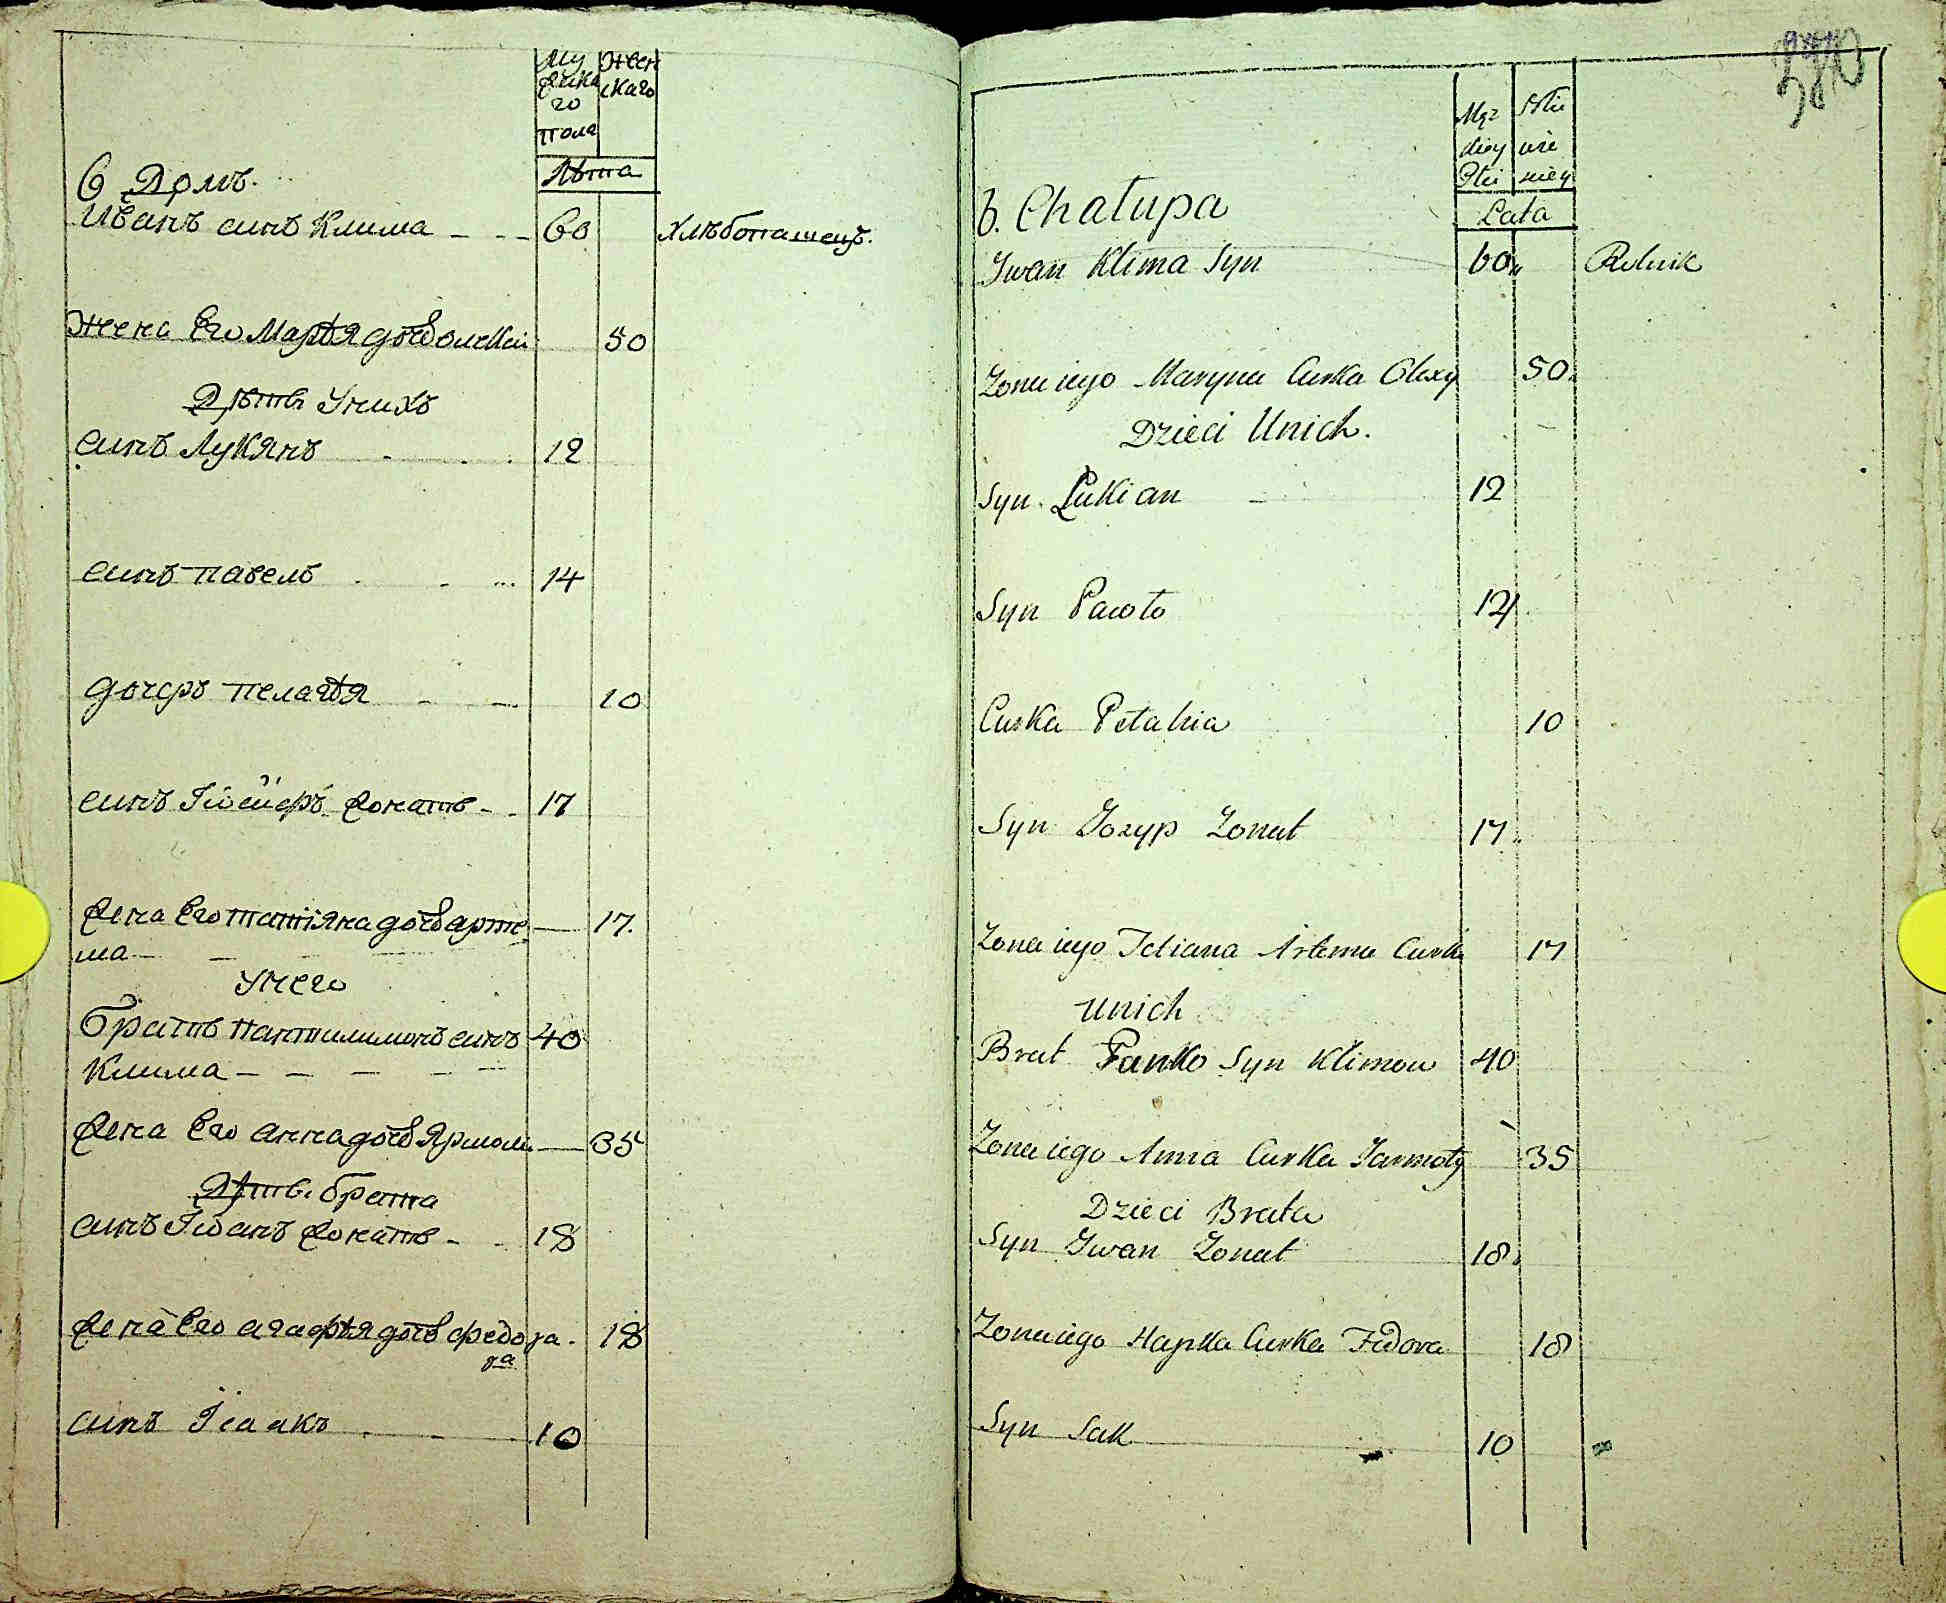 Му
жска
го
пола
Жен
скаго
Лѣта
6 Домъ.
Иванъ синъ Клима 60 Хлѣбопашецъ.
Жена Его Марѣя дочь Олекси 50
Дѣти Унихъ
синъ Лукянъ 12
синъ павелъ 14
дочеръ пелагѣя 10
синъ Іосифъ жонатъ 17
жена Его татіяна дочь арте 17.
ма
Унего
братъ пантилимонъ синъ 40
Клима
жена Его анна дочь Ярмоли 35
Дѣти брата
синъ Іванъ жонатъ 18
жена Его агафѣя дочь федора 18
ра
синъ Ісаакъ 10
Męz
kiey
Płci
Niewie
skiey
Lata
6. Chałupa
Iwan Klima Syn 60 Rolnik
Zona iego Maryna Curka Olexy 50.
Dzieci Unich.
Syn Łukian 12
Syn Pawło 14
Curka Pełahia 10
Syn Jozyp Zonat 17
Zona iego Tetiana Artema Curka 17
Unich
Brat Panko Syn Klimow 40
Zona iego Anna Curka Jarmoły 35
Dzieci Brata
Syn Iwan Zonat 18
Zona iego Hapka Curka Fedora 18
Syn Sak 10